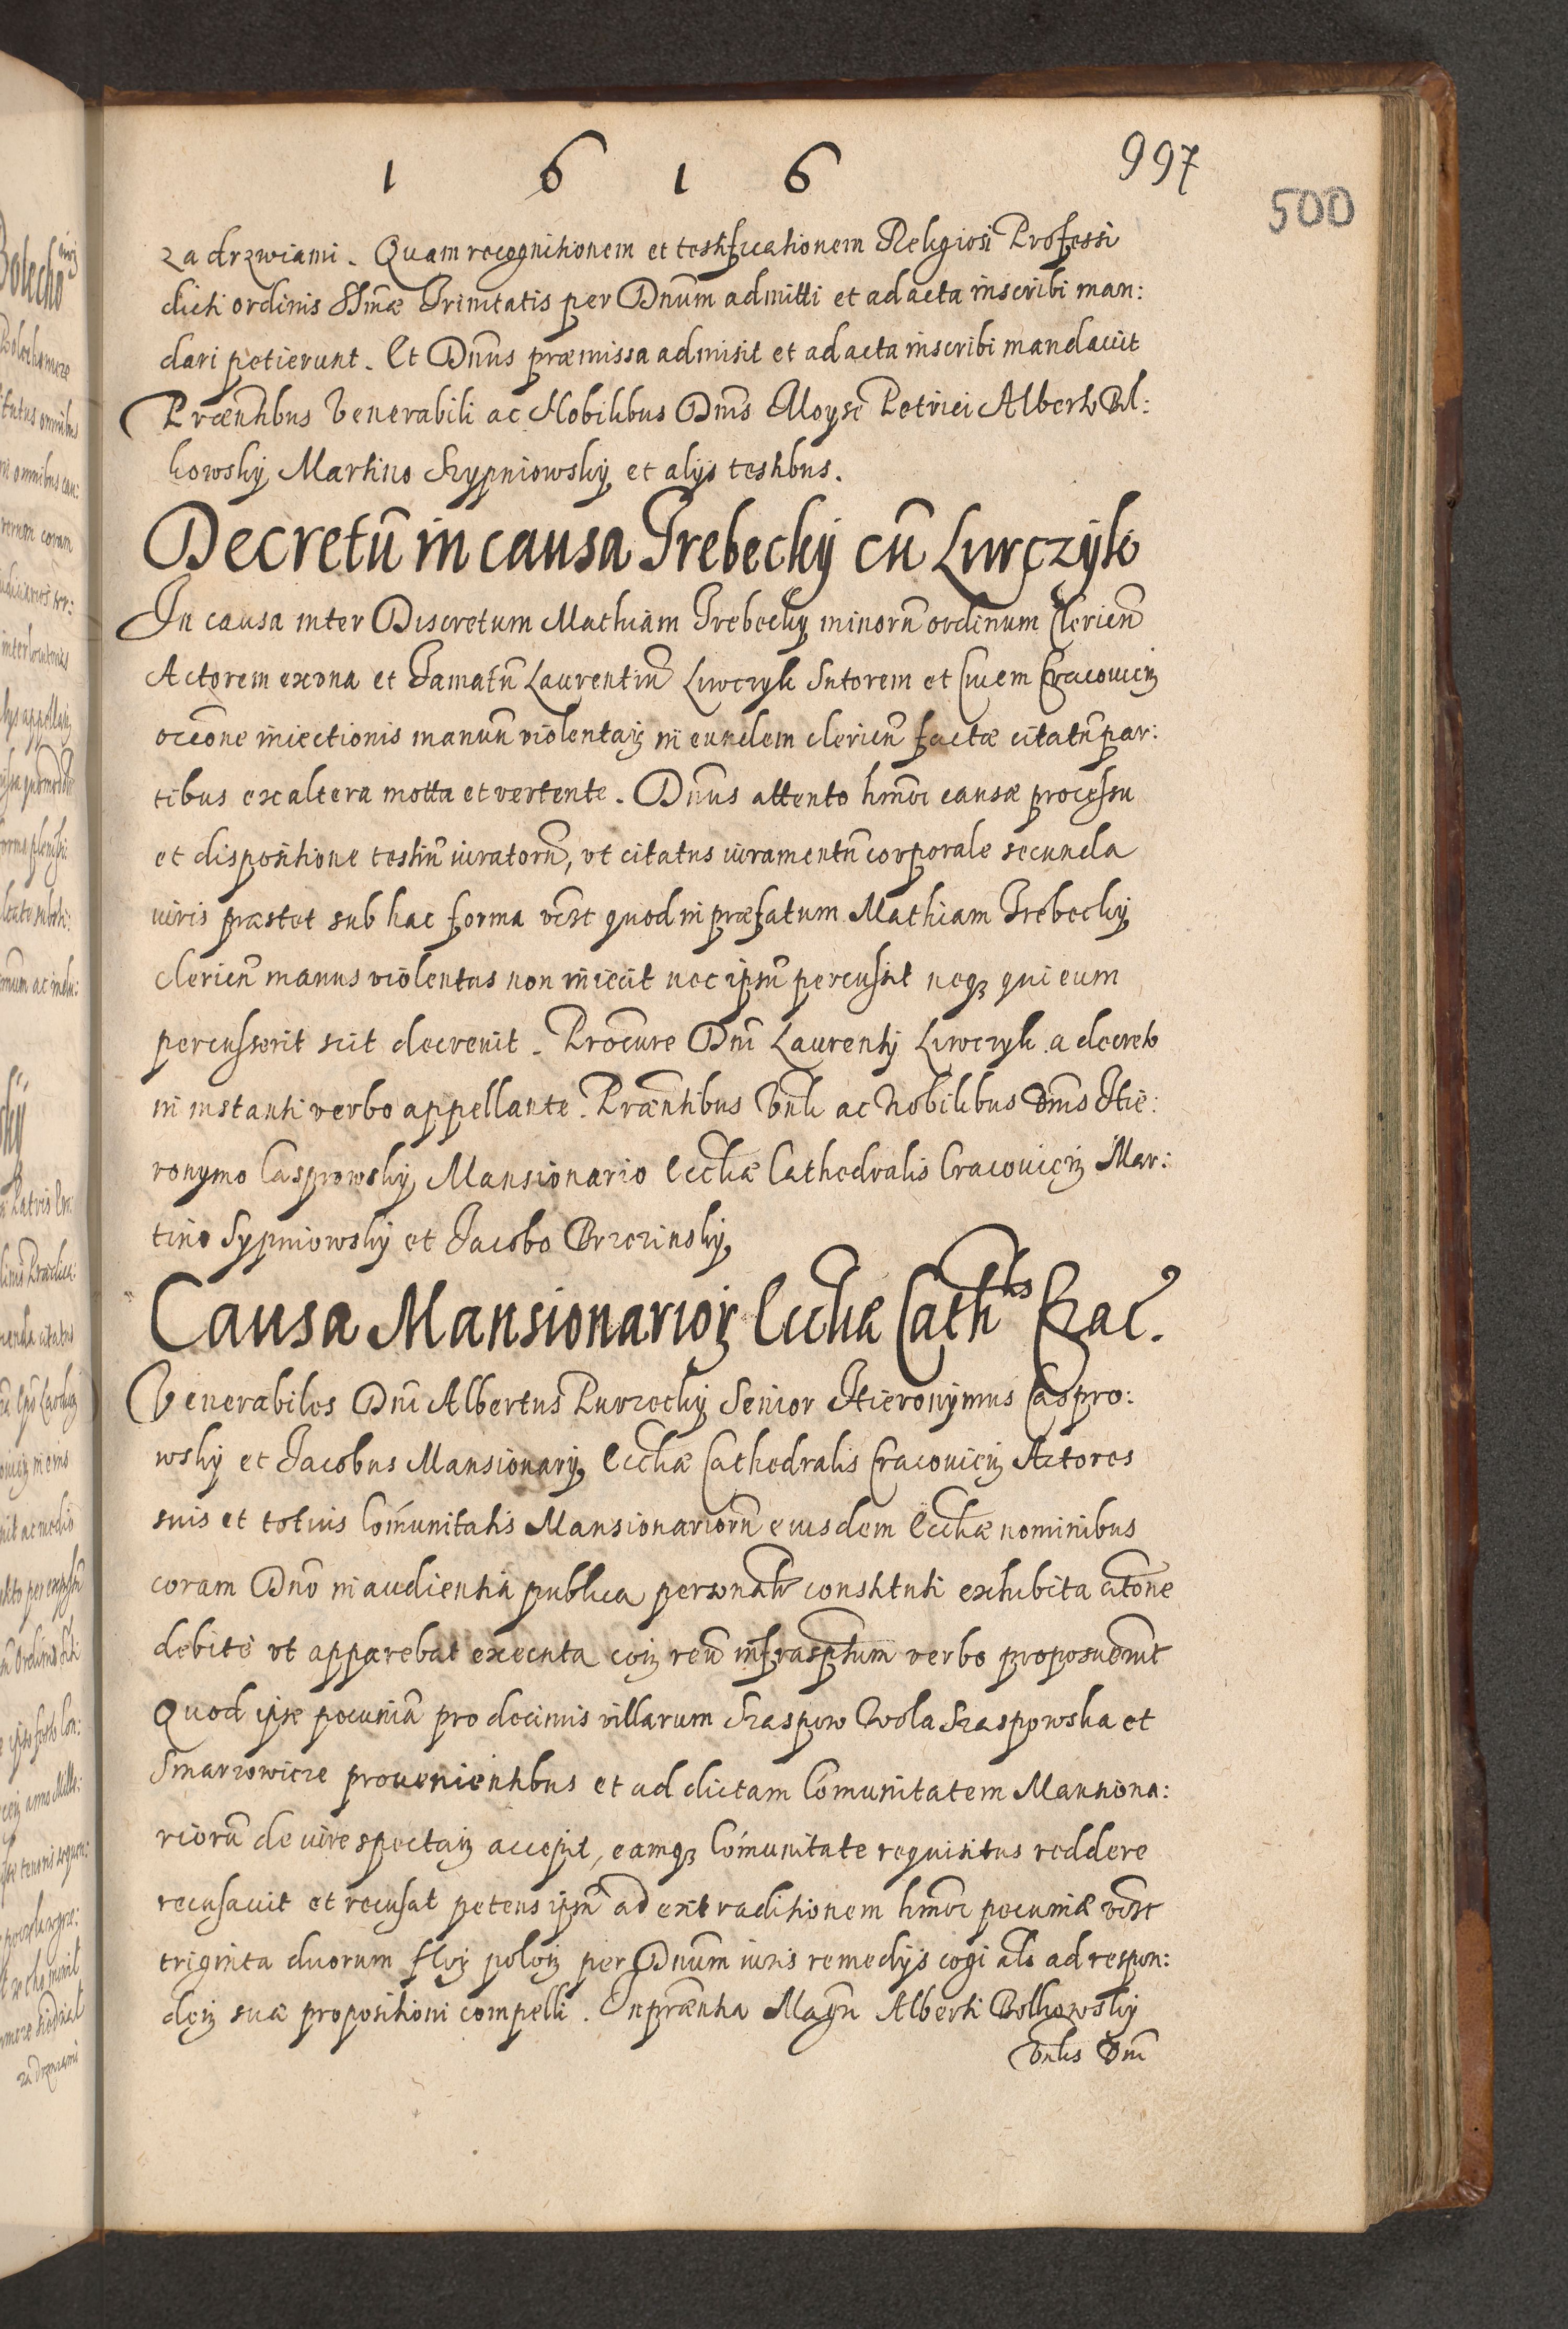 1 6 1 6
997
500
za drzwiami. Quam recognitionem et testificationem Religiosi Professi
dicti ordinis SSmæ Trinitatis per Dnum admitti et ad acta inscribi man:
dari petierunt. Et Dnus præmissa admisit et ad acta inscribi mandavit
Præntibus Venerabili ac Nobilibus Dnis Aloysi Petrici Alberto Bol:
kowsky Martino Szypniowsky et alys testibus.
Decretũ in causa Trebecky cũ Lwczyk
In causa inter Discretum Mathiam Trebecky minorũ ordinum Clericũ
Actorem ex vna et Famatũ Laurentiũ Lwczyk Sutorem et Civem Cracovień
occõne iniectionis manuũ violentaȝ in eundem clericũ factæ citatũ par:
tibus ex altera motta et vertente. Dnus attento hmõi causæ processu
et dispositione testiũ iuratorũ, vt citatus iuramentũ corporale secunda
iuris præstet sub hac forma vczt quod in præfatum Mathiam Trebecky
clericũ manus violentas non iniecit nec ipsũ percussit neqȝ qui eum
percusserit scit decrevit. Procure Dni Laurenty Lwczyk a decreto
in instanti verbo appellante. Præntibus Vnli ac Nobilibus Dnis Hie:
ronymo Casprowsky Mansionario Ecclæ Cathedralis Cracovień Mar:
tino Sypniowsky et Jacobo Brzezinsky
Causa Mansionarioȝ Ecclæ Cathlis Crac.
Venerabiles Dni Albertus Purzecky Senior Hieronymus Caspro:
wsky et Jacobus Mansionary Ecclæ Cathedralis Cracovień Actores
suis et totius Com̃unitatis Mansionariorũ eiusdem Ecclæ nominibus
coram Dno in audientia publica personalr constituti exhibita citõne
debite vt apparebat executa coń reũ infrasptum verbo proposuerũt
Quod ipse pecuniã pro decimis villarum Szaspow Wola Szaspowska et
Smarzowicze provenientibus et ad dictam Com̃unitatem Mansiona:
riorũ de iure spectań accepit, eamqȝ Com̃unitate requisitus reddere
recusavit et recusat petens ipsũ ad extraditionem hmõi pecuniæ vczt
triginta duorum floȝ poloń per Dnum iuris remedijs cogi als ad respon:
deń suæ propositioni compelli. In præntia Magrĩ Alberti Bolkowsky
Vnlis Dni